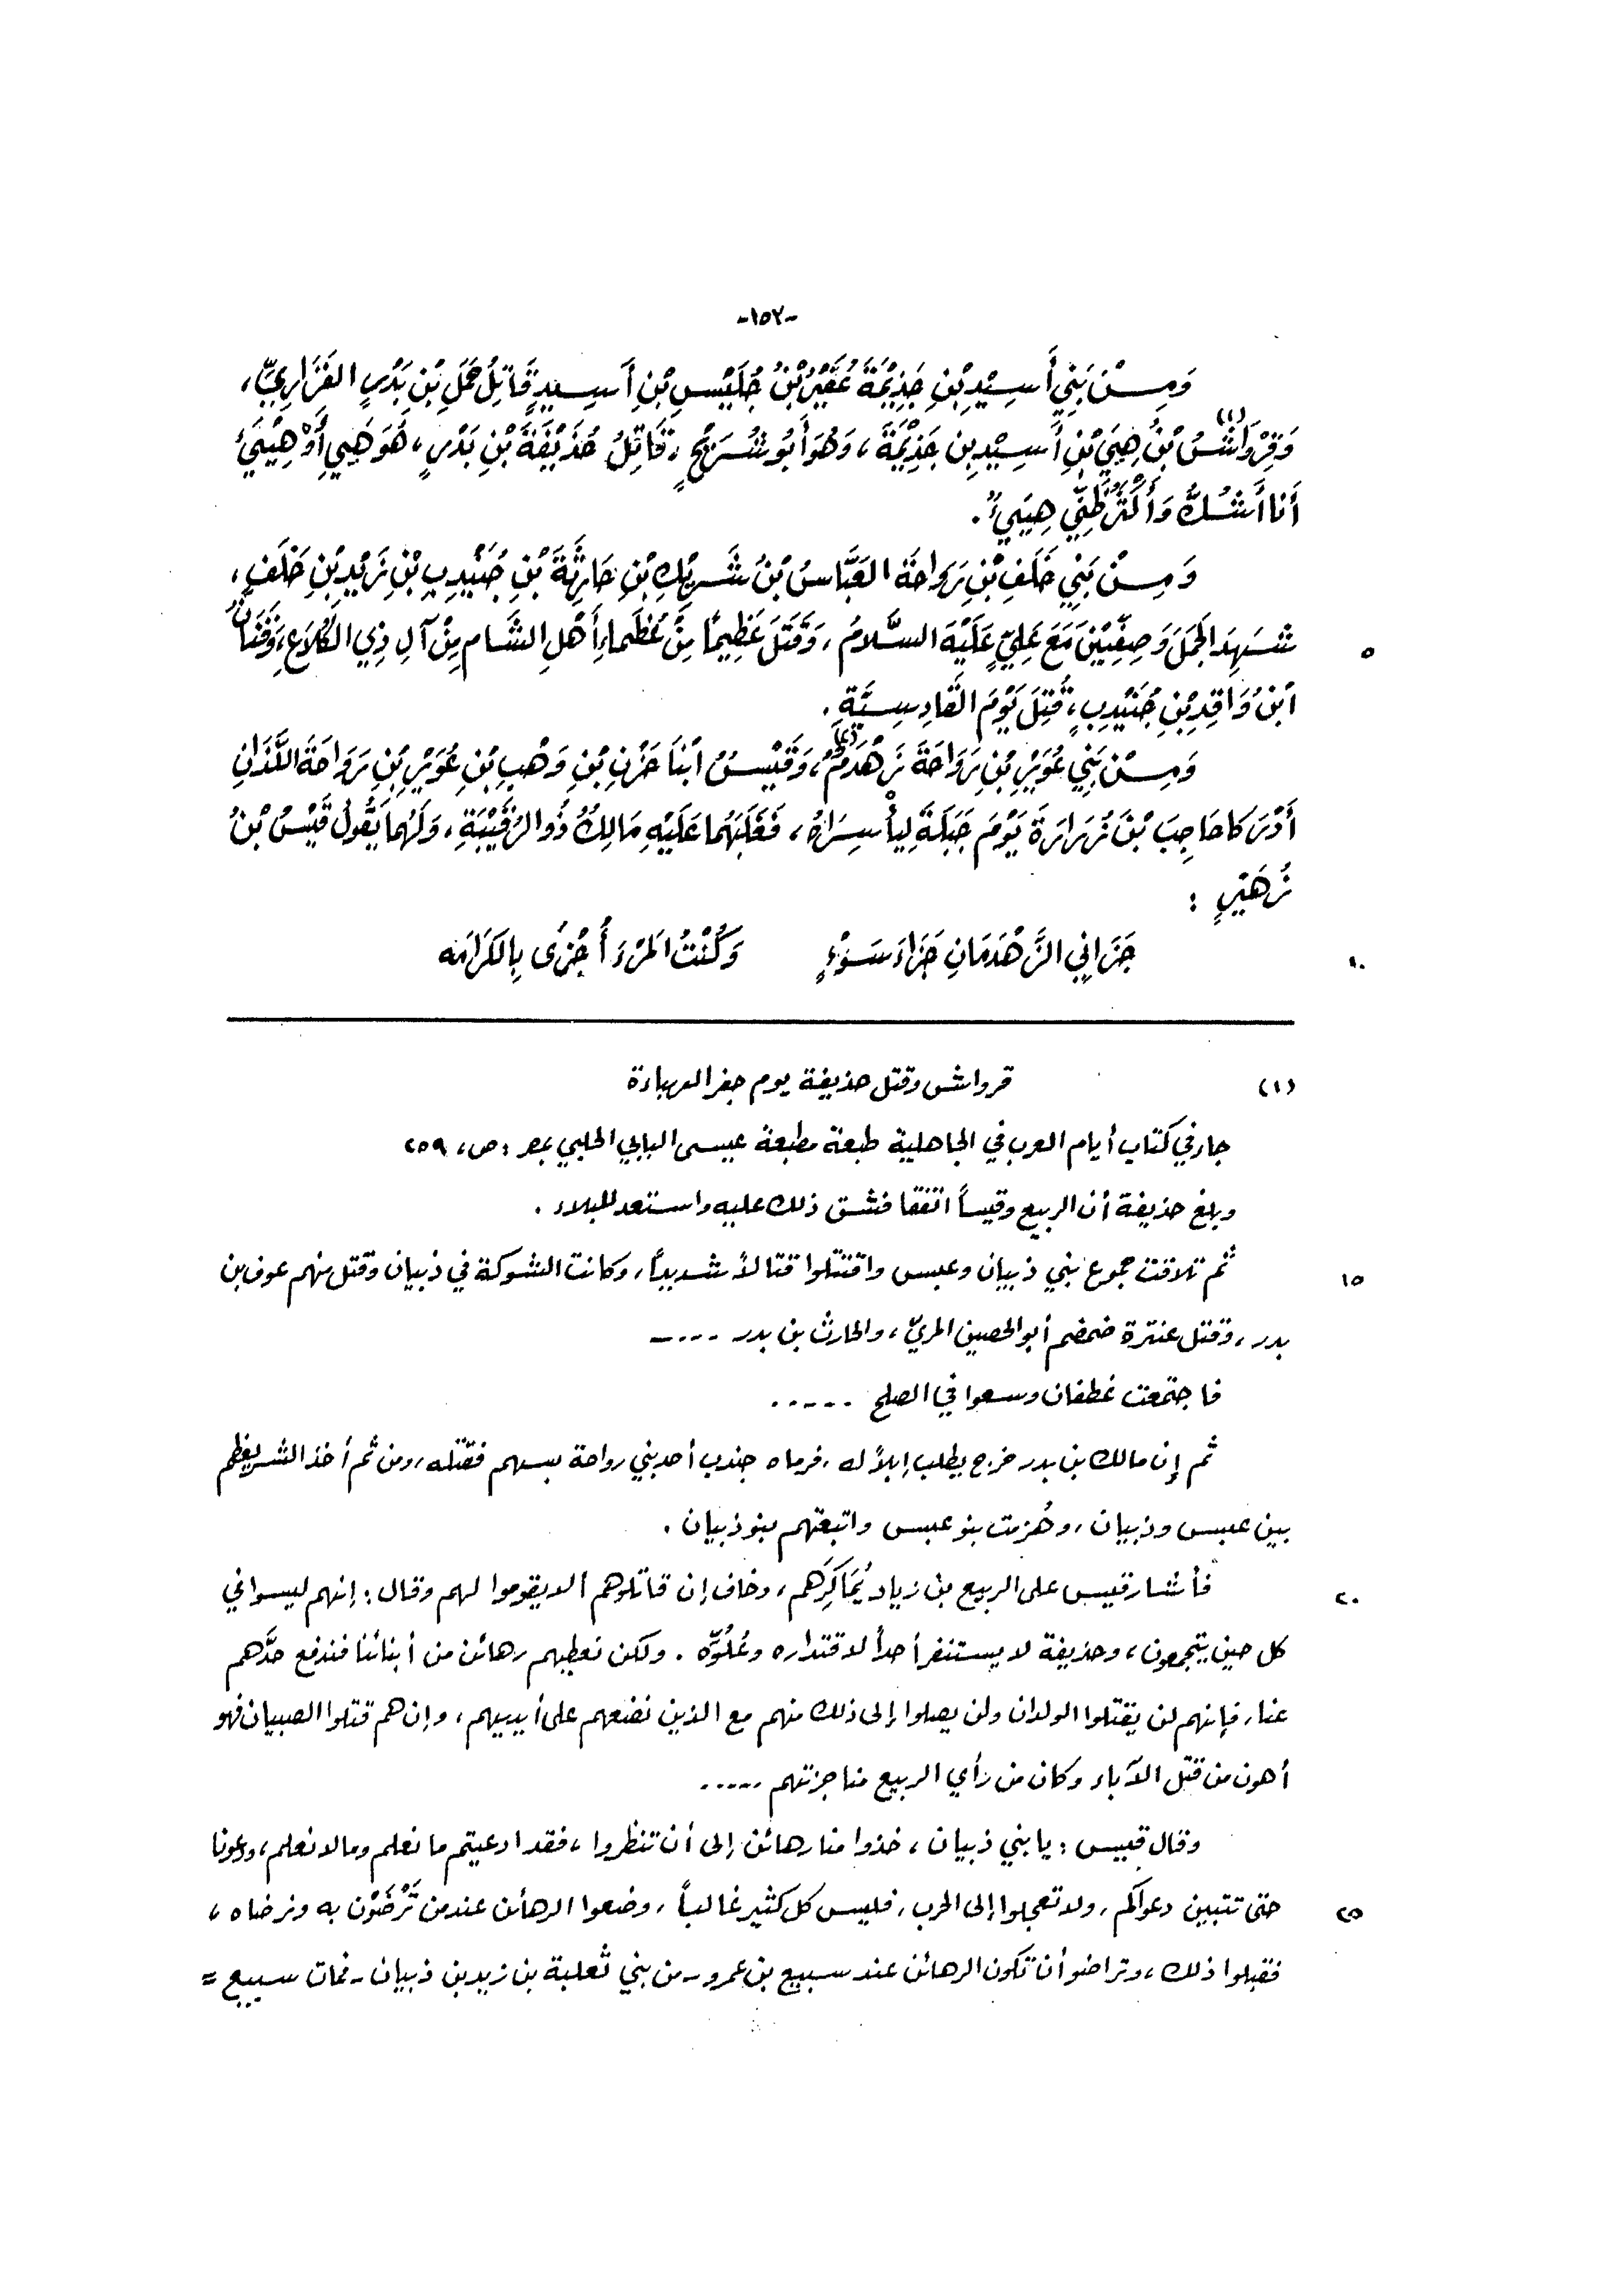 -١٥٢-
وَمِنْ بَنِي أَسِيْدِ بْنِ جَذِيْمَةَ عُقَيْرُ بْنُ حُلَيْسِ بْنِ أَسِيدٍ قَاتِلُ حَمَلِ بْنِ بَدْرٍ الفَزَارِيِّ،
وَقِرْوَاشُ(١) بْنُ هِنِيِّ بْنِ أَسِيْدِ بنِ جَذِيْمَةَ، وَهُوَ أَبُو شُرَيْحٍ، قَاتِلُ حُذَيْفَةَ بْنِ بَدْرٍ، هُوَ هَنِي أَوْ هِنِيٌّ
أَنَا أَشُكُّ وَأَكْثَرُ ظَنِّي هِنِيٌّ.
وَمِنْ بَنِي خَلَفِ بْنِ رَوَاحَةَ العَبَّاسُ بْنُ شَرِيْكِ بْنِ حَارِثَةَ بْنِ جُنَيْدِبِ بْنِ زَيْدِ بْنِ خَلَفٍ،
شَهِدَ الجَمَلَ وَصِفِّيْنَ مَعَ عَلِيٍّ عَلَيْهِ السَّلَامُ، وَقَتَلَ عَظِيمًا مِنْ عُظَمَاءِ أَهْلِ الشَّامِ مِنْ آلِ ذِي الكَلَاعِ، وَقَنَانُ ٥
ابْنُ وَاقِدِ بْنِ جُنَيْدِبٍ، قُتِلَ يَوْمَ القَادِسِيَّةِ.
وَمِنْ بَنِي عُوَيْرِ بْنِ رَوَاحَةَ زَهْدَمٌ(٢)، وَقَيْسٌ ابْنَا حَزْنِ بْنِ وَهْبِ بْنِ عُوَيْرِ بْنِ رَوَاحَةَ اللَّذَانِ
أَدْرَكَا حَاجِبَ بْنَ زُرَارَةَ يَوْمَ جَبَلَةَ لِيَأْسِرَاهُ، فَغَلَبَهُمَا عَلَيْهِ مَالِكٌ ذُو الرُّقَيْبَةِ، وَلَهُمَا يَقُولُ قَيْسُ بْنُ
زُهَيْرٍ :
جَزَانِي الزَّهْدَمَانِ جَزَاءَ سَوْءٍ وَكُنْتُ المَرْءَ أُجْزَى بِالكَرَامَه ١٠
(١) قرواش وقتل حذيفة يوم جفر الهباءة
جاء في كتاب أيام العرب في الجاهلية طبعة مطبعة عيسى البابي الحلبي بمصر : ص، ٢٥٩
وبلغ حذيفة أن الربيع وقيساً اتفقا فشق ذلك عليه واستعد للبلاء .
ثم تلاقت جموع بني ذبيان وعبس واقتتلوا قتالاً شديداً، وكانت الشوكة في ذبيان وقتل منهم عوف بن ١٥
بدر، وقتل عنترة ضمضم أبو الحصين المريّ، والحارث بن بدر ....
فاجتمعت غطفان وسعوا في الصلح .....
ثم إن مالك بن بدر خرج يطلب إبلاً له، فرماه جندب أحد بني رواحة بسهم فقتله، ومن ثم أخذ الشر يعظم
بين عبس وذبيان، وهُزمت بنو عبس واتبعتهم بنو ذبيان .
فأشار قيس على الربيع بن زياد يُمَاكِرَهم، وخاف إن قاتلوهم ألا يقوموا لهم وقال : إنهم ليسوا في ٢٠
كل حين يتجمعون، وحذيفة لا يستنفر أحداً لاقتداره وعُلُوِّه . ولكن نعطيهم رهائن من أبنائنا فندفع حدَّهم
عنا، فإنهم لن يقتلوا الولدان ولن يصلوا إلى ذلك منهم مع الذين نضعهم على أيديهم، وإن هم قتلوا الصبيان فهو
أهون من قتل الآباء وكان من رأي الربيع مناجزتهم .....
وقال قيس : يا بني ذبيان، خذوا منا رهائن إلى أن تنظروا، فقد ادعيتم ما نعلم وما لا نعلم، ودعونا
حتى تتبين دعواكم، ولا تعجلوا إلى الحرب، فليس كل كثير غالباً، وضعوا الرهائن عند من تَرْضَوْن به ونرضاه، ٢٥
فقبلوا ذلك، وتراضوا أن تكون الرهائن عند سبيع بن عمرو - من بني ثعلبة بن زيد بن ذبيان - فمات سبيع =